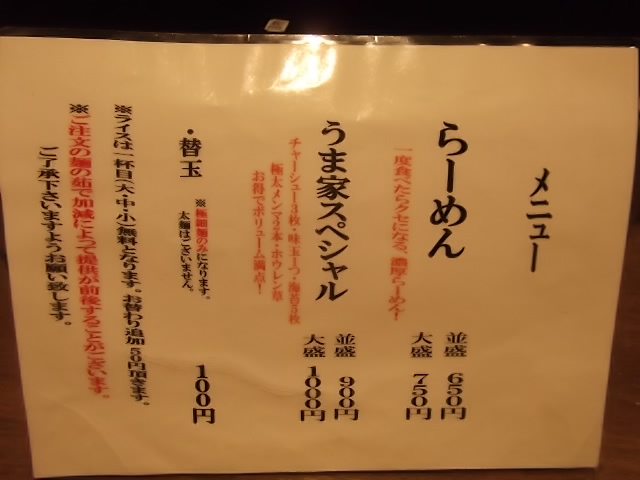 メニュー
らーめん
一度食べたらクセになる、濃厚らーめん！
並盛 650円
大盛 750円
うま家スペシャル
チャーシュー3枚・味玉1つ・海苔3枚
極太メンマ2本・ホウレン草
お得でボリューム満点！
並盛 900円
大盛 1000円
・替玉
※極細麺のみになります。
太麺はございません。
100円
※ライスは一杯目(大・中・小)無料となります。お替わり追加50円頂きます。
※ご注文の麺の茹で加減によって提供が前後することがございます。
ご了承下さいますようお願い致します。